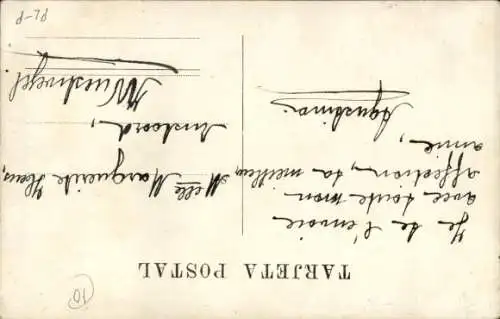 TARJETA POSTAL
Je te l'envoie
avec toute mon
affection, ta meilleure
amie,
Agustina
Melle Marguerite Haus,
Insoord,
Wuestwezel
10
PL-P